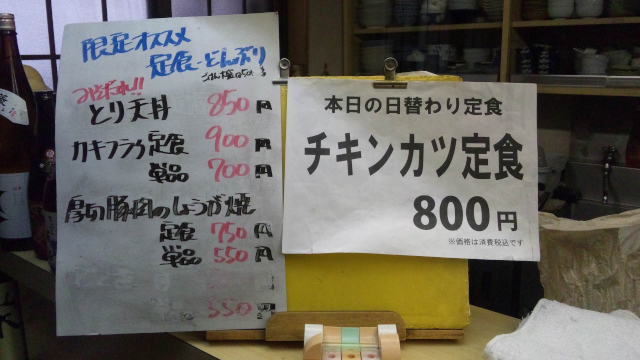 限定オススメ
定食・どんぶり
みそだれ!!
とり天丼 850円
カキフライ定食 900円
単品 700円
厚切豚肉のしょうが焼
定食 750円
単品 550円
550円
本日の日替わり定食
チキンカツ定食
800円
※価格は消費税込です